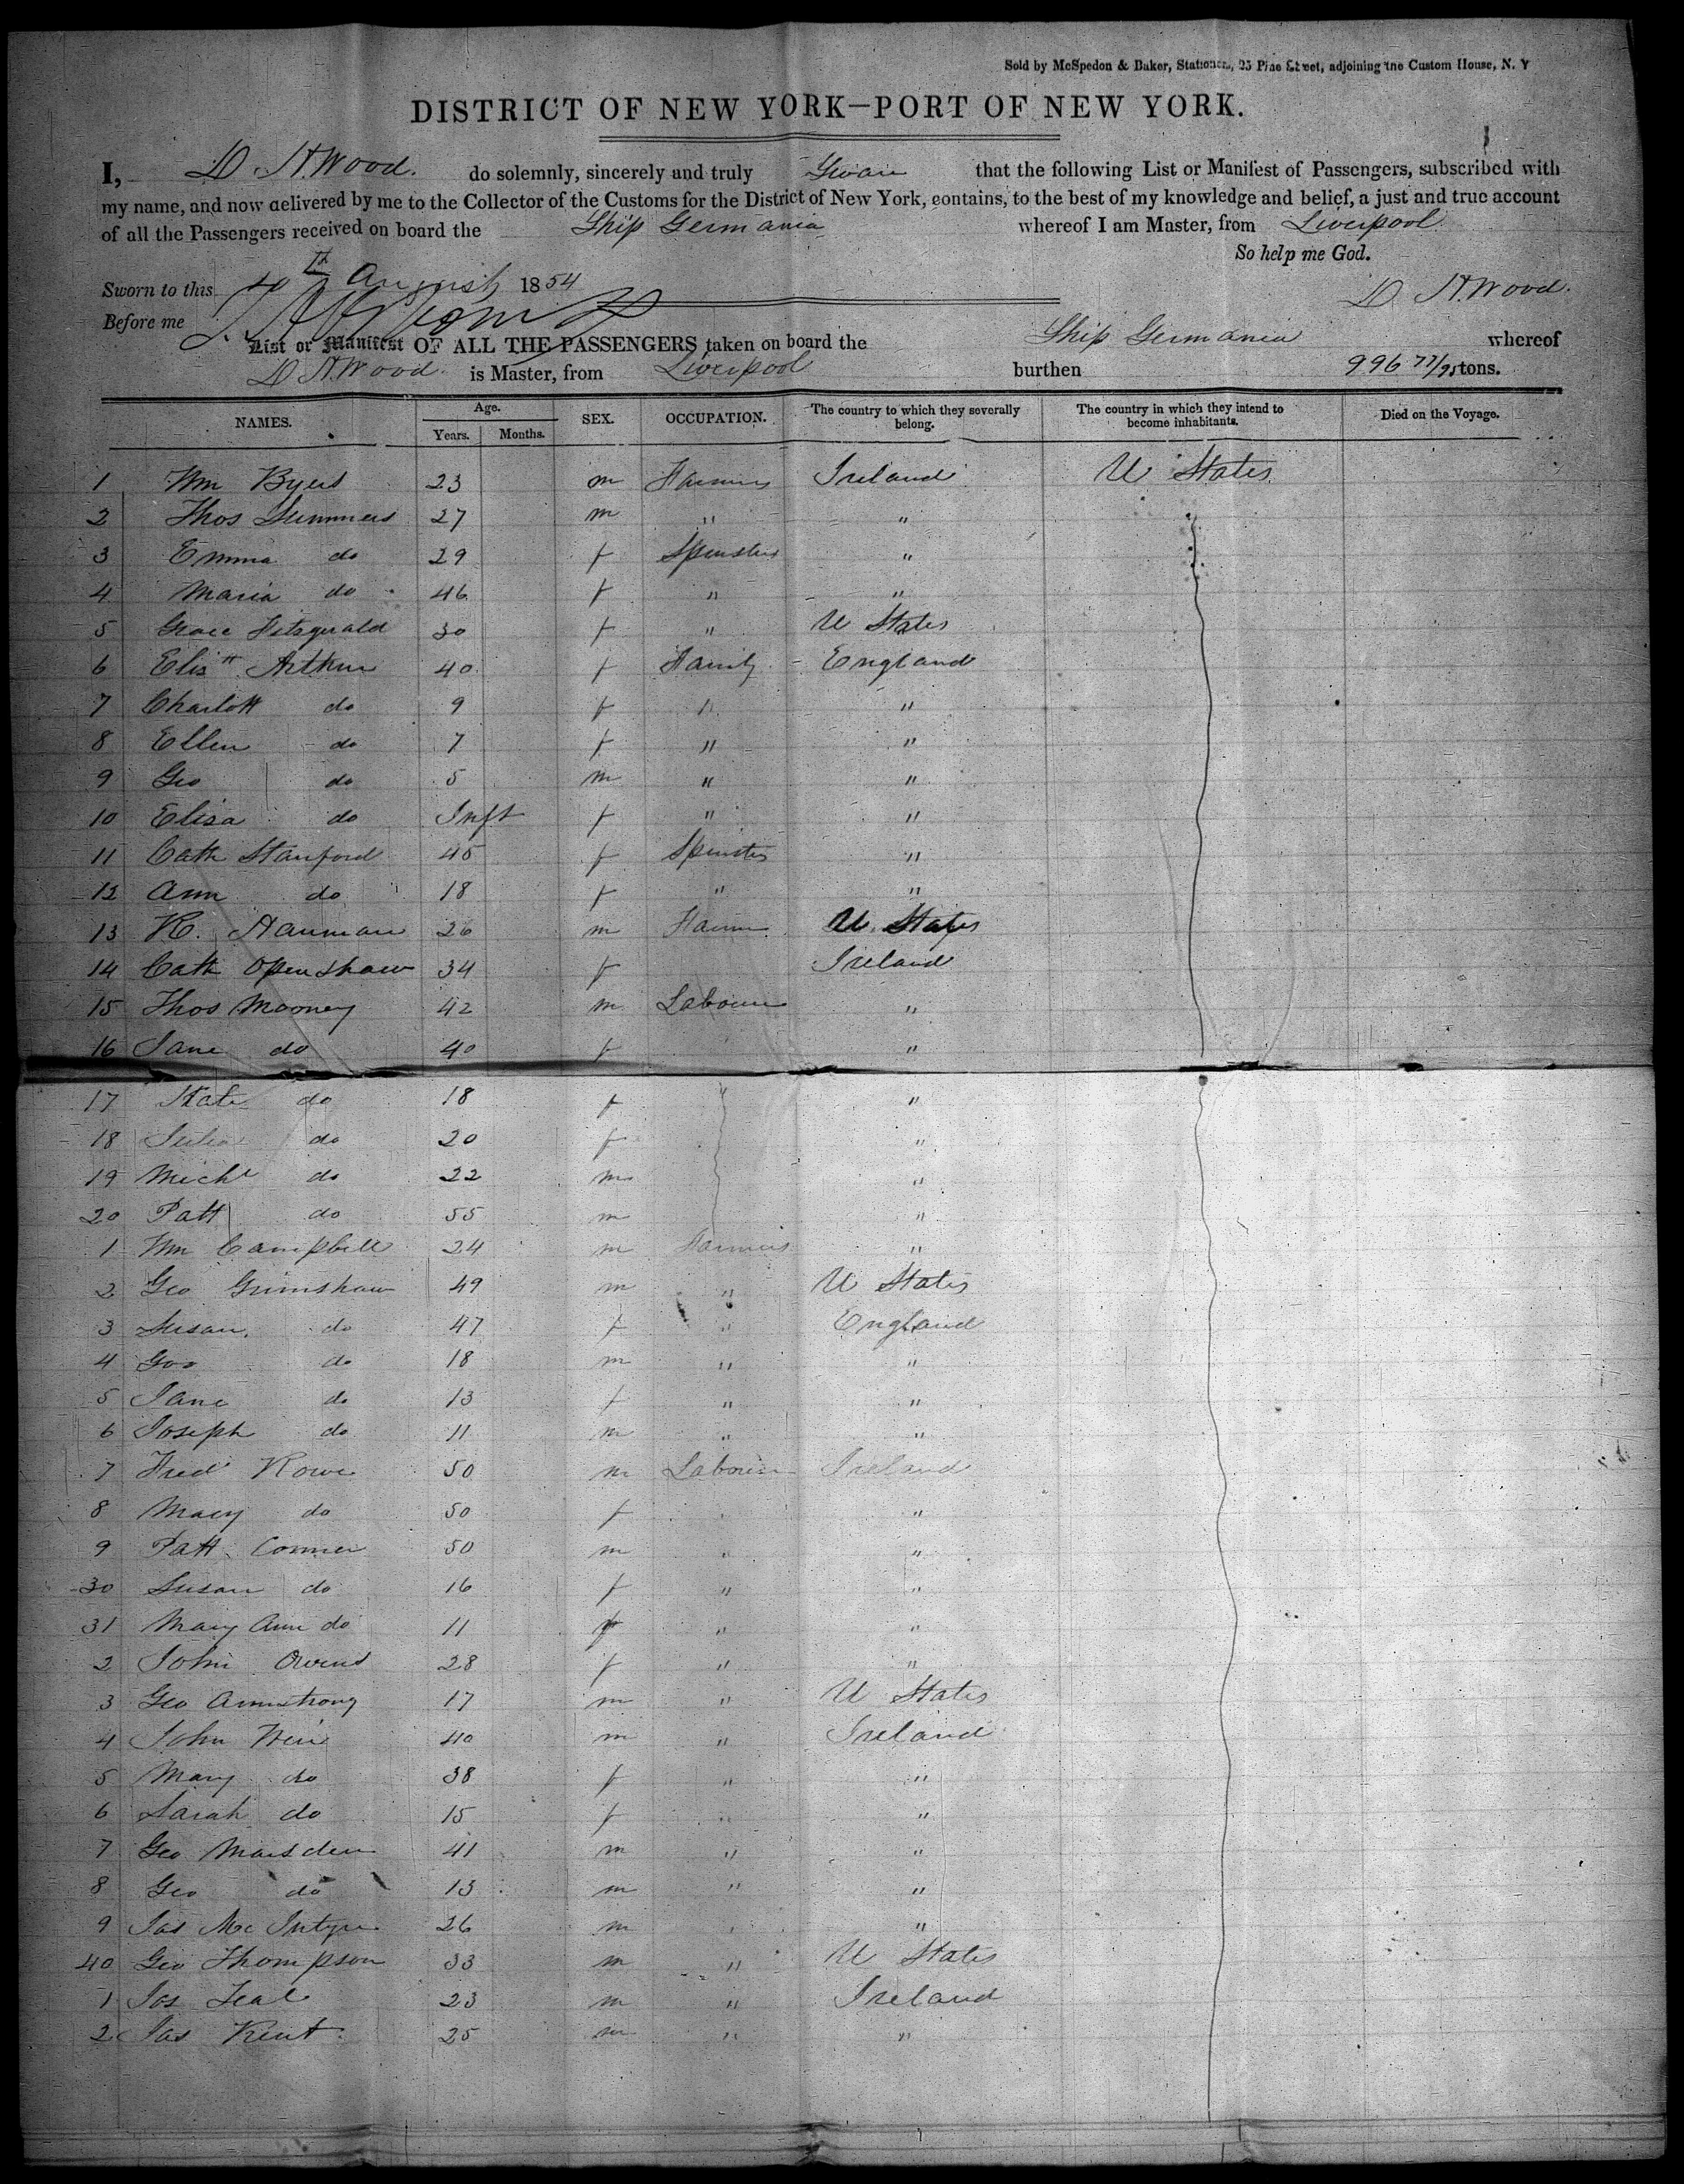 Sold by McSpedon & Baker, Stationers, 25 Pine Street, adjoining the Custom House, N. Y
DISTRICT OF NEW YORK—PORT OF NEW YORK.
I, D. H. Wood. do solemnly, sincerely and truly Swear that the following List or Manifest of Passengers, subscribed with
my name, and now delivered by me to the Collector of the Customs for the District of New York, contains, to the best of my knowledge and belief, a just and true account
of all the Passengers received on board the Ship Germania whereof I am Master, from Liverpool
So help me God.
Sworn to this August 1854
D. H. Wood.
Before me
List or Manifest OF ALL THE PASSENGERS taken on board the Ship Germania whereof
D H. Wood. is Master, from Liverpool burthen 996 77/95 tons.
NAMES. Age. Years. Months. SEX. OCCUPATION. The country to which they severally belong. The country in which they intend to become inhabitants. Died on the Voyage.
1 Wm Byers 23 m Farmers Ireland U States
2 Thos Summers 27 m " "
3 Emma do 29 f Spinsters "
4 Maria do 46 f " "
5 Grace Fitzgerald 30 f " U States
6 Elizth Arthur 40 f Family England
7 Charlott do 9 f " "
8 Ellen do 7 f " "
9 Geo do 5 m " "
10 Eliza do Inft f " "
11 Cath Stanford 45 f Spinsters "
12 Ann do 18 f " "
13 Hanman 26 m Farmer U. States
14 Cath Openshaw 34 f Ireland
15 Thos Mooney 42 m Labourer "
16 Jane do 40 f "
17 Kate do 18 f "
18 Julia do 20 f "
19 Michl do 22 m "
20 Patt do 55 m "
1 Wm Campbell 24 m Farmers "
2 Geo Grimshaw 49 m " U States
3 Susan do 47 f " England
4 Geo do 18 m " "
5 Jane do 13 f " "
6 Joseph do 11 m " "
7 Fred Rowe 50 m Labourer Ireland
8 Mary do 50 f "
9 Patt Conner 50 m " "
30 Susan do 16 f " "
31 Mary Ann do 11 f " "
2 John Owens 28 f " "
3 Geo Armstrong 17 m " U States
4 John Weir 40 m " Ireland
5 Mary do 38 f " "
6 Sarah do 15 f " "
7 Geo Marsden 41 m " "
8 Geo do 13 m " "
9 Jas McIntyre 26 m "
40 Geo Thompson 33 m " U States
1 Jos Teal 23 m " Ireland
2 Jas Kent 25 m " "